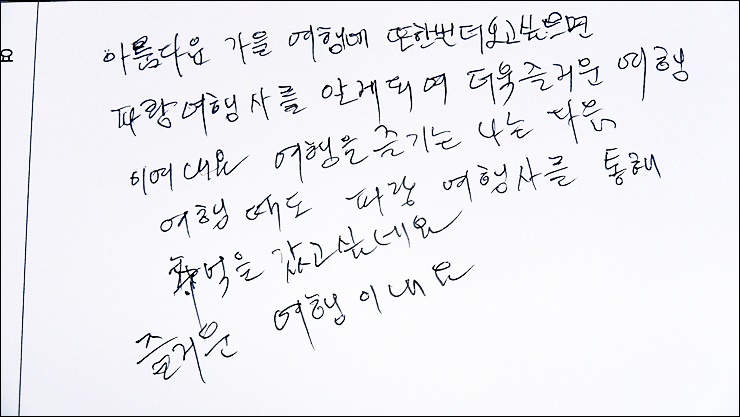 요
아름다운 가을 여행에 또한번더오고싶으면
파랑여행사를 알게되여 더욱즐거운 여행
이여내요 여행을 즐기는 나는 다음
여행 때도 파랑 여행사를 통해
추억을 갔고싶네요
즐거운 여행이내요